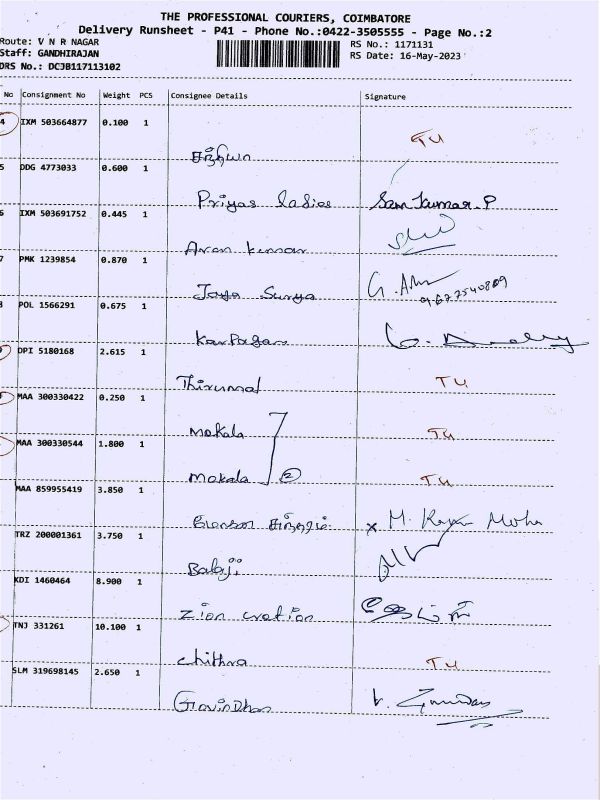 THE PROFESSIONAL COURIERS, COIMBATORE
Delivery Runsheet - P41 - Phone No.:0422-3505555 - Page No.:2
Route: V N R NAGAR
RS No.: 1171131
Staff: GANDHIRAJAN
RS Date: 16-May-2023
DRS No.: DCJB117113102
No Consignment No Weight PCS Consignee Details Signature
4 IXM 503664877 0.100 1 TU
5 DDG 4773033 0.600 1 Priyas ladies Sam Kumar.P
6 IXM 503691752 0.445 1 Arun kumar
7 PMK 1239854 0.870 1 Jaya Surya G.
POL 1566291 0.675 1 Karpagam
DPI 5180168 2.615 1 Thirumal TU
MAA 300330422 0.250 1 mekala TU
MAA 300330544 1.800 1 mekala 2 TU
MAA 859955419 3.850 1 x M.
TRZ 200001361 3.750 1 Balaji
KDI 1460464 8.900 1 Zion cration
TNJ 331261 10.100 1 chithra TU
SLM 319698145 2.650 1 Govindhas